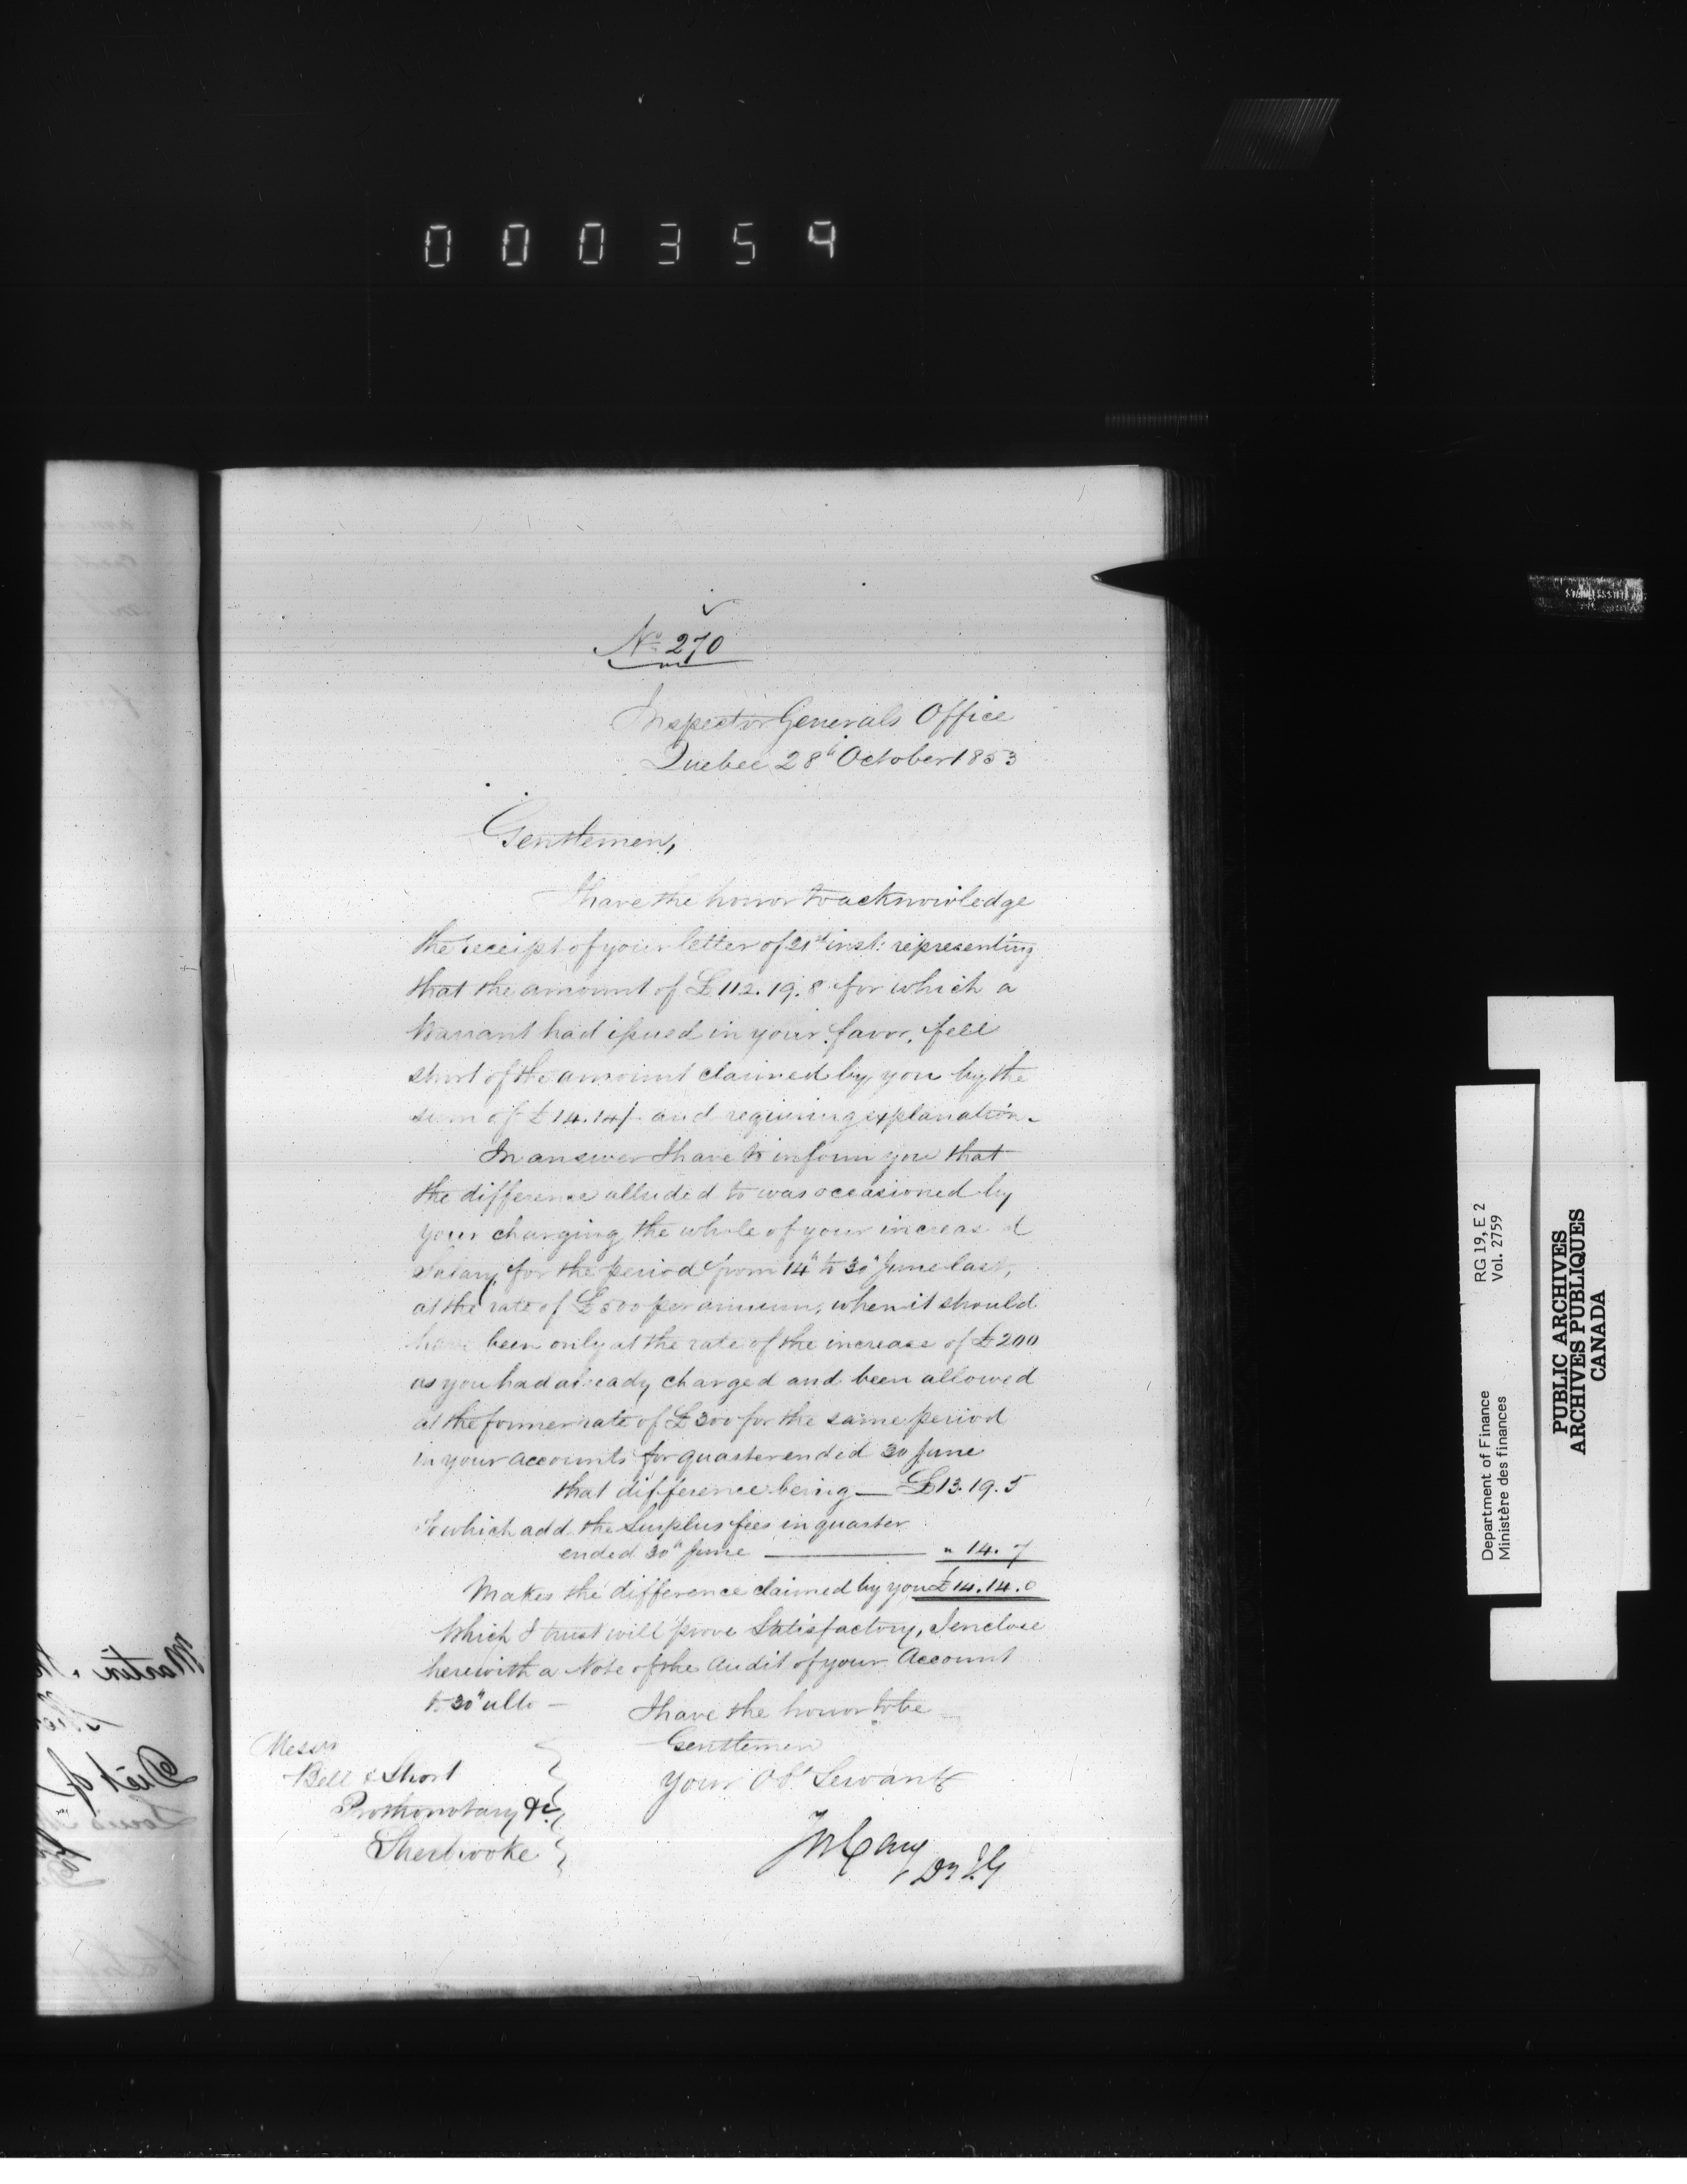 000359
No. 270
Inspector Generals Office
Quebec 28th October 1853
Gentlemen,
I have the honor to acknowledge
the receipt of your letter of 21st inst: representing
that the amount of £112.19.8 for which a
Warrant had issued in your favor, fell
short of the amount claimed by you by the
sum of £14.14/- and requiring explanation.
In answer I have to inform you that
the difference alluded to was occasioned by
your charging the whole of your increased
Salary for the period from 14th to 30th June last,
at the rate of £500 per annum, when it should
have been only at the rate of the increase of £200
as you had already charged and been allowed
at the former rate of £300 for the same period
in your accounts for quarter ended 30 June
that difference being — £13.19.5
To which add the Surplus fees in quarter
ended 30th June — " 14.7
Makes the difference claimed by you £14.14.0
Which I trust will prove Satisfactory, I enclose
herewith a Note of the Audit of your Account
to 30th ulto —
I have the honor to be
Gentlemen
Your Ob. Servant
Messrs
Bell & Short
Prothonotary &c
Sherbrooke
Jos Cary
Dy I G
RG 19, E 2
Vol. 2759
Department of Finance
Ministère des finances
PUBLIC ARCHIVES
ARCHIVES PUBLIQUES
CANADA